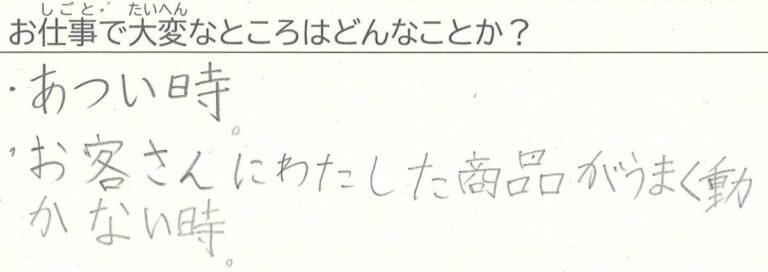 しごと たいへん
お仕事で大変なところはどんなことか？
・あつい時。
・お客さんにわたした商品がうまく動
かない時。